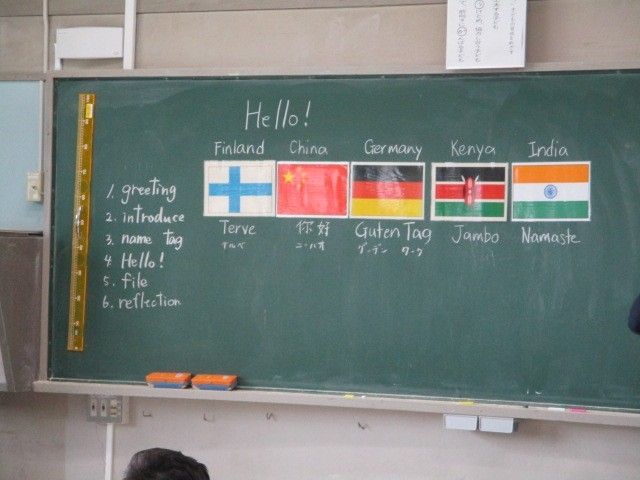 Hello!
Finland China Germany Kenya India
Terve 你好 Guten Tag Jambo Namaste
テルベ ニーハオ グーテン ターク
1. greeting
2. introduce
3. name tag
4. Hello!
5. file
6. reflection